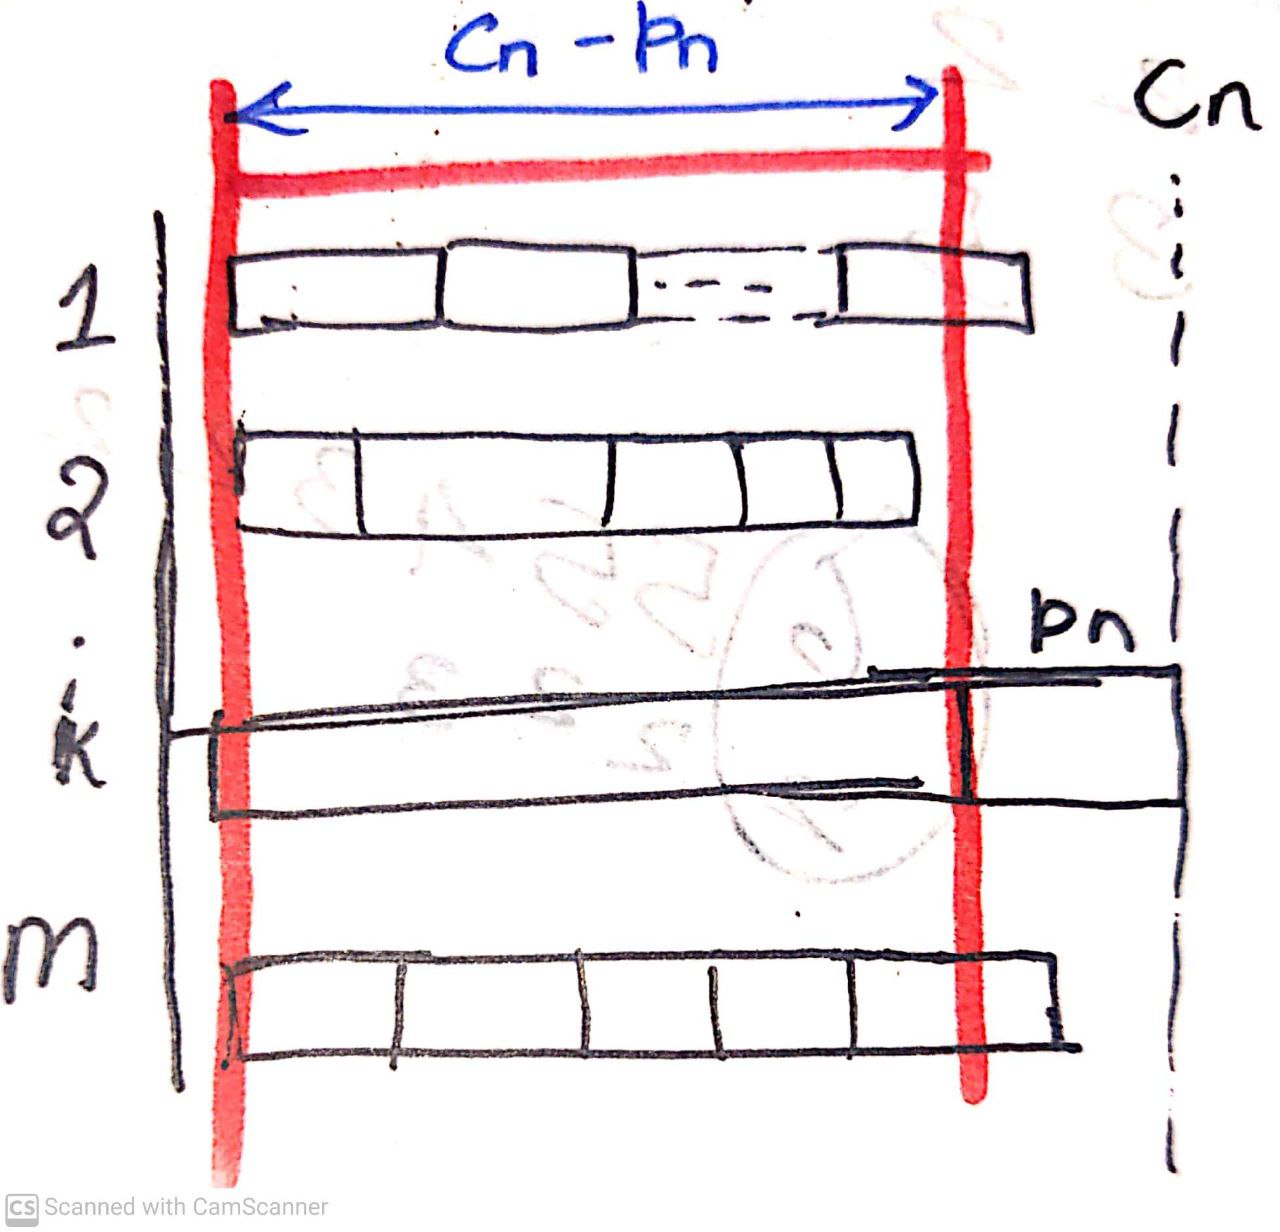 Cn - Pn
Cn
1
2
Pn
k
m
CS Scanned with CamScanner